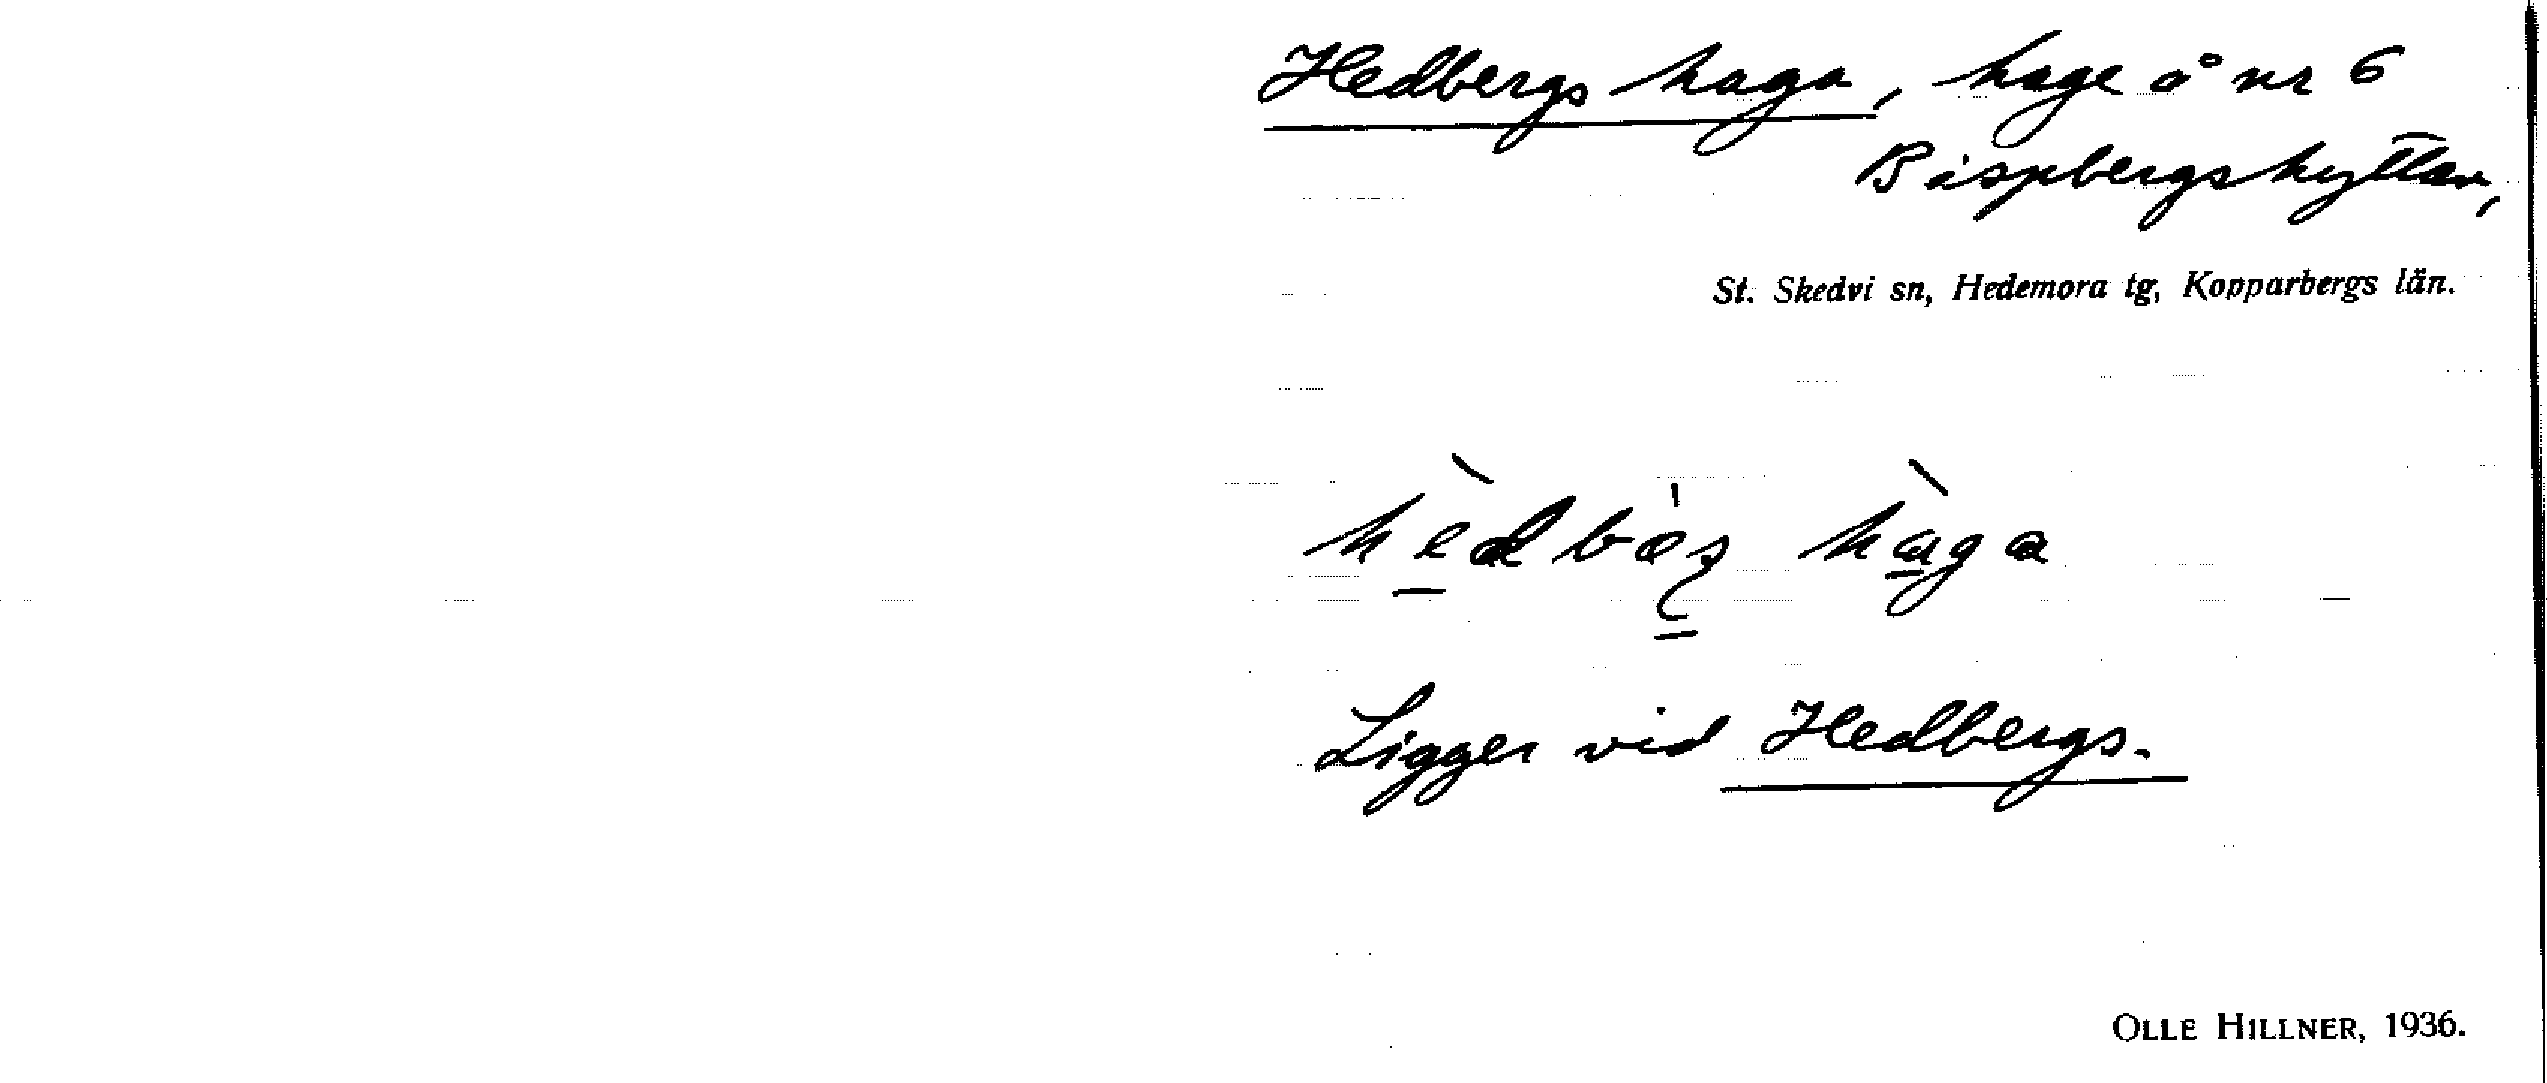 Hedbergs haga, hage å nr 6
Bispbergshyttan,
St. Skedvi sn, Hedemora tg, Kopparbergs län.
Ligger vid Hedbergs.
OLLE HILLNER, 1936.